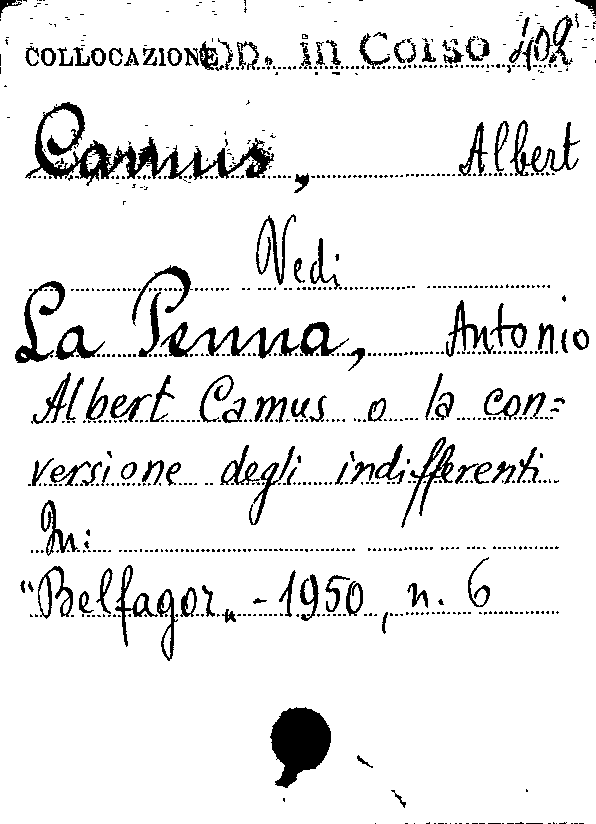 COLLOCAZIONE Op. in Corso 402
Camus, Albert
Vedi
La Penna, Antonio
Albert Camus o la con=
versione degli indifferenti
In:
"Belfagor„ - 1950, n. 6